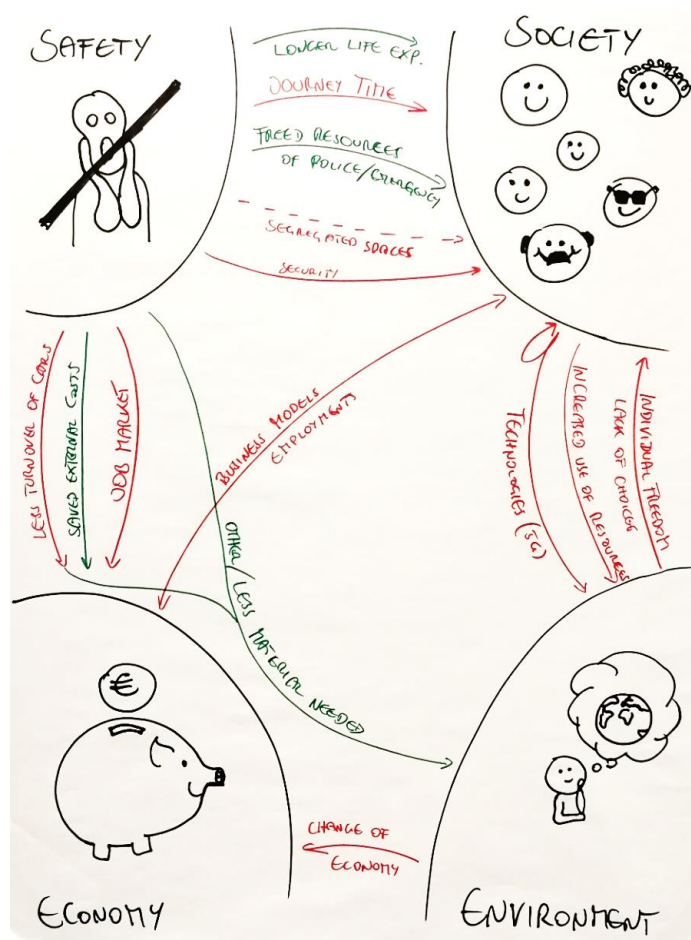 SAFETY
SOCIETY
LONGER LIFE EXP.
JOURNEY TIME
FREED RESOURCES
OF POLICE/EMERGENCY
SEGREGATED SPACES
SECURITY
LESS TURNOVER OF CARS
SAVED EXTERNAL COSTS
JOB MARKET
BUSINESS MODELS
EMPLOYMENTS
TECHNOLOGIES (5G)
INCREASED USE OF RESOURCES
LACK OF CHOICES
INDIVIDUAL FREEDOM
OTHER/LESS MATERIAL NEEDED
€
CHANGE OF
ECONOMY
ECONOMY
ENVIRONMENT